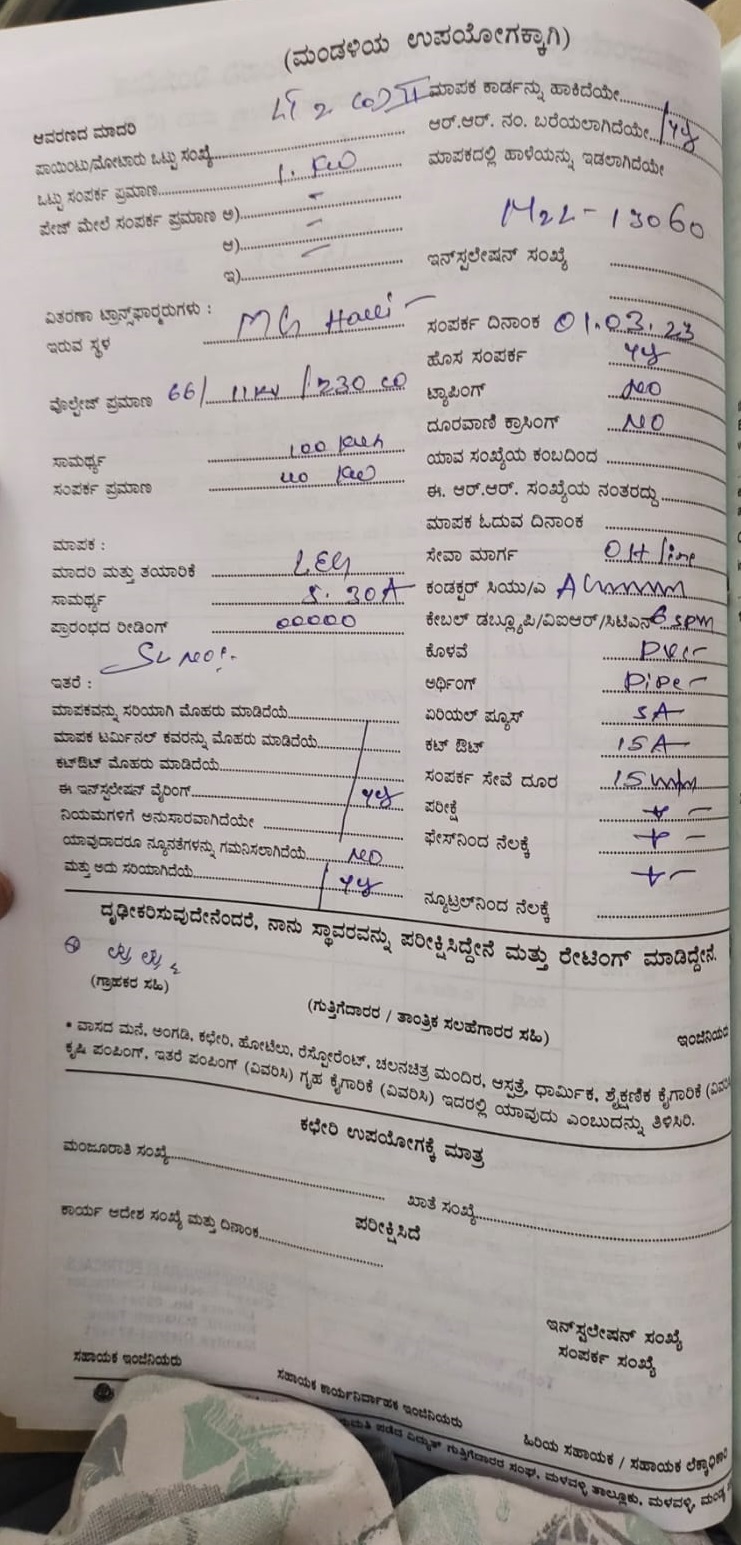 (ಮಂಡಳಿಯ ಉಪಯೋಗಕ್ಕಾಗಿ)
ಆವರಣದ ಮಾದರಿ LT 2
ಪಾಯಿಂಟು/ಮೋಟಾರು ಒಟ್ಟು ಸಂಖ್ಯೆ
ಒಟ್ಟು ಸಂಪರ್ಕ ಪ್ರಮಾಣ 1.
ಫೇಜ್ ಮೇಲೆ ಸಂಪರ್ಕ ಪ್ರಮಾಣ ಅ) -
ಆ) -
ಇ) -
ವಿತರಣಾ ಟ್ರಾನ್ಸ್‌ಫಾರ್ಮರುಗಳು :
ಇರುವ ಸ್ಥಳ MG Halli
ವೊಲ್ಟೇಜ್ ಪ್ರಮಾಣ 66/11KV/230
ಸಾಮರ್ಥ್ಯ 100
ಸಂಪರ್ಕ ಪ್ರಮಾಣ
ಮಾಪಕ :
ಮಾದರಿ ಮತ್ತು ತಯಾರಿಕೆ
ಸಾಮರ್ಥ್ಯ 30A
ಪ್ರಾರಂಭದ ರೀಡಿಂಗ್ 00000
SL NO:-
ಇತರೆ :
ಮಾಪಕವನ್ನು ಸರಿಯಾಗಿ ಮೊಹರು ಮಾಡಿದೆಯೆ
ಮಾಪಕ ಟರ್ಮಿನಲ್ ಕವರನ್ನು ಮೊಹರು ಮಾಡಿದೆಯೆ
ಕಟ್‌ಔಟ್ ಮೊಹರು ಮಾಡಿದೆಯೆ
ಈ ಇನ್‌ಸ್ಟಲೇಷನ್ ವೈರಿಂಗ್
ನಿಯಮಗಳಿಗೆ ಅನುಸಾರವಾಗಿದೆಯೇ
ಯಾವುದಾದರೂ ನ್ಯೂನತೆಗಳನ್ನು ಗಮನಿಸಲಾಗಿದೆಯೆ NO
ಮತ್ತು ಅದು ಸರಿಯಾಗಿದೆಯೆ
ಮಾಪಕ ಕಾರ್ಡನ್ನು ಹಾಕಿದೆಯೇ
ಆರ್.ಆರ್. ನಂ. ಬರೆಯಲಾಗಿದೆಯೇ
ಮಾಪಕದಲ್ಲಿ ಹಾಳೆಯನ್ನು ಇಡಲಾಗಿದೆಯೇ
M2L-13060
ಇನ್‌ಸ್ಟಲೇಷನ್ ಸಂಖ್ಯೆ
ಸಂಪರ್ಕ ದಿನಾಂಕ 01.03.23
ಹೊಸ ಸಂಪರ್ಕ
ಟ್ಯಾಪಿಂಗ್ NO
ದೂರವಾಣಿ ಕ್ರಾಸಿಂಗ್ NO
ಯಾವ ಸಂಖ್ಯೆಯ ಕಂಬದಿಂದ
ಈ. ಆರ್.ಆರ್. ಸಂಖ್ಯೆಯ ನಂತರದ್ದು
ಮಾಪಕ ಓದುವ ದಿನಾಂಕ
ಸೇವಾ ಮಾರ್ಗ OH line
ಕಂಡಕ್ಟರ್ ಸಿಯು/ಎ
ಕೇಬಲ್ ಡಬ್ಲ್ಯೂಪಿ/ವಿಐಆರ್/ಸಿಟಿಎಸ್
ಕೊಳವೆ PVC
ಅರ್ಥಿಂಗ್ Pipe
ಏರಿಯಲ್ ಫ್ಯೂಸ್ 5A
ಕಟ್ ಔಟ್ 15A
ಸಂಪರ್ಕ ಸೇವೆ ದೂರ
ಪರೀಕ್ಷೆ + -
ಫೇಸ್‌ನಿಂದ ನೆಲಕ್ಕೆ + -
+ -
ನ್ಯೂಟ್ರಲ್‌ನಿಂದ ನೆಲಕ್ಕೆ
ದೃಢೀಕರಿಸುವುದೇನೆಂದರೆ, ನಾನು ಸ್ಥಾವರವನ್ನು ಪರೀಕ್ಷಿಸಿದ್ದೇನೆ ಮತ್ತು ರೇಟಿಂಗ್ ಮಾಡಿದ್ದೇನೆ.
(ಗ್ರಾಹಕರ ಸಹಿ)
(ಗುತ್ತಿಗೆದಾರರ / ತಾಂತ್ರಿಕ ಸಲಹೆಗಾರರ ಸಹಿ)
* ವಾಸದ ಮನೆ, ಅಂಗಡಿ, ಕಛೇರಿ, ಹೋಟೆಲು, ರೆಸ್ಟೋರೆಂಟ್, ಚಲನಚಿತ್ರ ಮಂದಿರ, ಆಸ್ಪತ್ರೆ, ಧಾರ್ಮಿಕ, ಶೈಕ್ಷಣಿಕ ಕೈಗಾರಿಕೆ
ಕೃಷಿ ಪಂಪಿಂಗ್, ಇತರೆ ಪಂಪಿಂಗ್ (ವಿವರಿಸಿ) ಗೃಹ ಕೈಗಾರಿಕೆ (ವಿವರಿಸಿ) ಇದರಲ್ಲಿ ಯಾವುದು ಎಂಬುದನ್ನು ತಿಳಿಸಿರಿ.
ಕಛೇರಿ ಉಪಯೋಗಕ್ಕೆ ಮಾತ್ರ
ಮಂಜೂರಾತಿ ಸಂಖ್ಯೆ
ಖಾತೆ ಸಂಖ್ಯೆ
ಕಾರ್ಯ ಆದೇಶ ಸಂಖ್ಯೆ ಮತ್ತು ದಿನಾಂಕ
ಪರೀಕ್ಷಿಸಿದೆ
ಇನ್‌ಸ್ಟಲೇಷನ್ ಸಂಖ್ಯೆ
ಸಂಪರ್ಕ ಸಂಖ್ಯೆ
ಸಹಾಯಕ ಇಂಜಿನಿಯರು
ಸಹಾಯಕ ಕಾರ್ಯನಿರ್ವಾಹಕ ಇಂಜಿನಿಯರು
ಹಿರಿಯ ಸಹಾಯಕ / ಸಹಾಯಕ
ವಿದ್ಯುತ್ ಗುತ್ತಿಗೆದಾರರ ಸಂಘ, ಮಳವಳ್ಳಿ ತಾಲ್ಲೂಕು, ಮಳವಳ್ಳಿ,